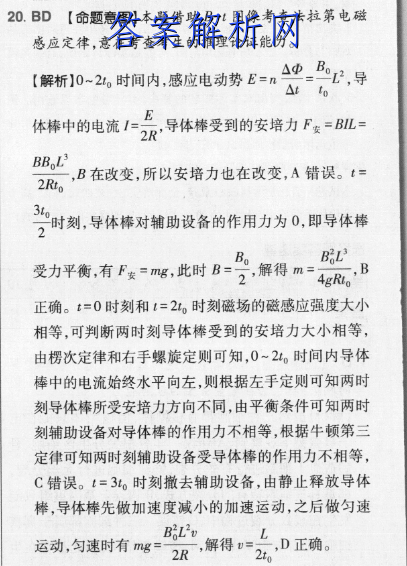 20. BD 【命题意图】本题借助 图像考查法拉第电磁
答案解析网
感应定律,意在考查考生的推理论证能力。
【解析】0~2t₀ 时间内,感应电动势 E=n ΔΦ/Δt = B₀/t₀ L²,导
体棒中的电流 I= E/2R,导体棒受到的安培力 F安 =BIL=
BB₀L³/2Rt₀,B 在改变,所以安培力也在改变,A 错误。t=
3t₀/2 时刻,导体棒对辅助设备的作用力为 0,即导体棒
受力平衡,有 F安 =mg,此时 B= B₀/2,解得 m= B₀²L³/4gRt₀,B
正确。t=0 时刻和 t=2t₀ 时刻磁场的磁感应强度大小
相等,可判断两时刻导体棒受到的安培力大小相等,
由楞次定律和右手螺旋定则可知,0~2t₀ 时间内导体
棒中的电流始终水平向左,则根据左手定则可知两时
刻导体棒所受安培力方向不同,由平衡条件可知两时
刻辅助设备对导体棒的作用力不相等,根据牛顿第三
定律可知两时刻辅助设备受导体棒的作用力不相等,
C 错误。t=3t₀ 时刻撤去辅助设备,由静止释放导体
棒,导体棒先做加速度减小的加速运动,之后做匀速
运动,匀速时有 mg= B₀²L²v/2R,解得 v= L/2t₀,D 正确。